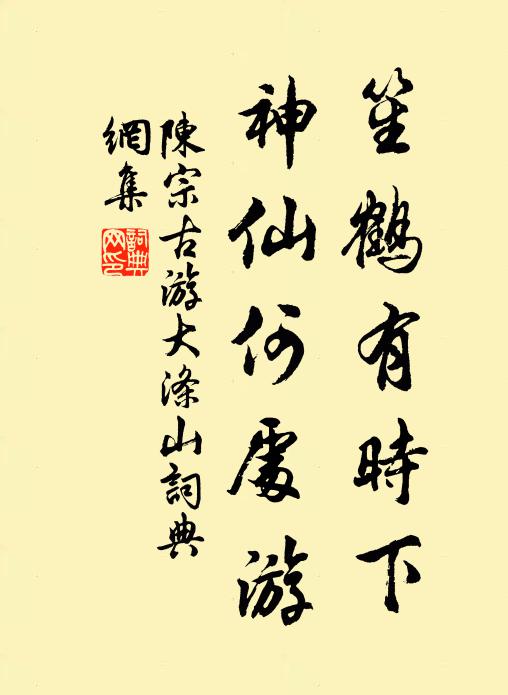 笙鶴有時下
神仙何處游
陳宗古游大滌山詞典
網集
詞典
网印